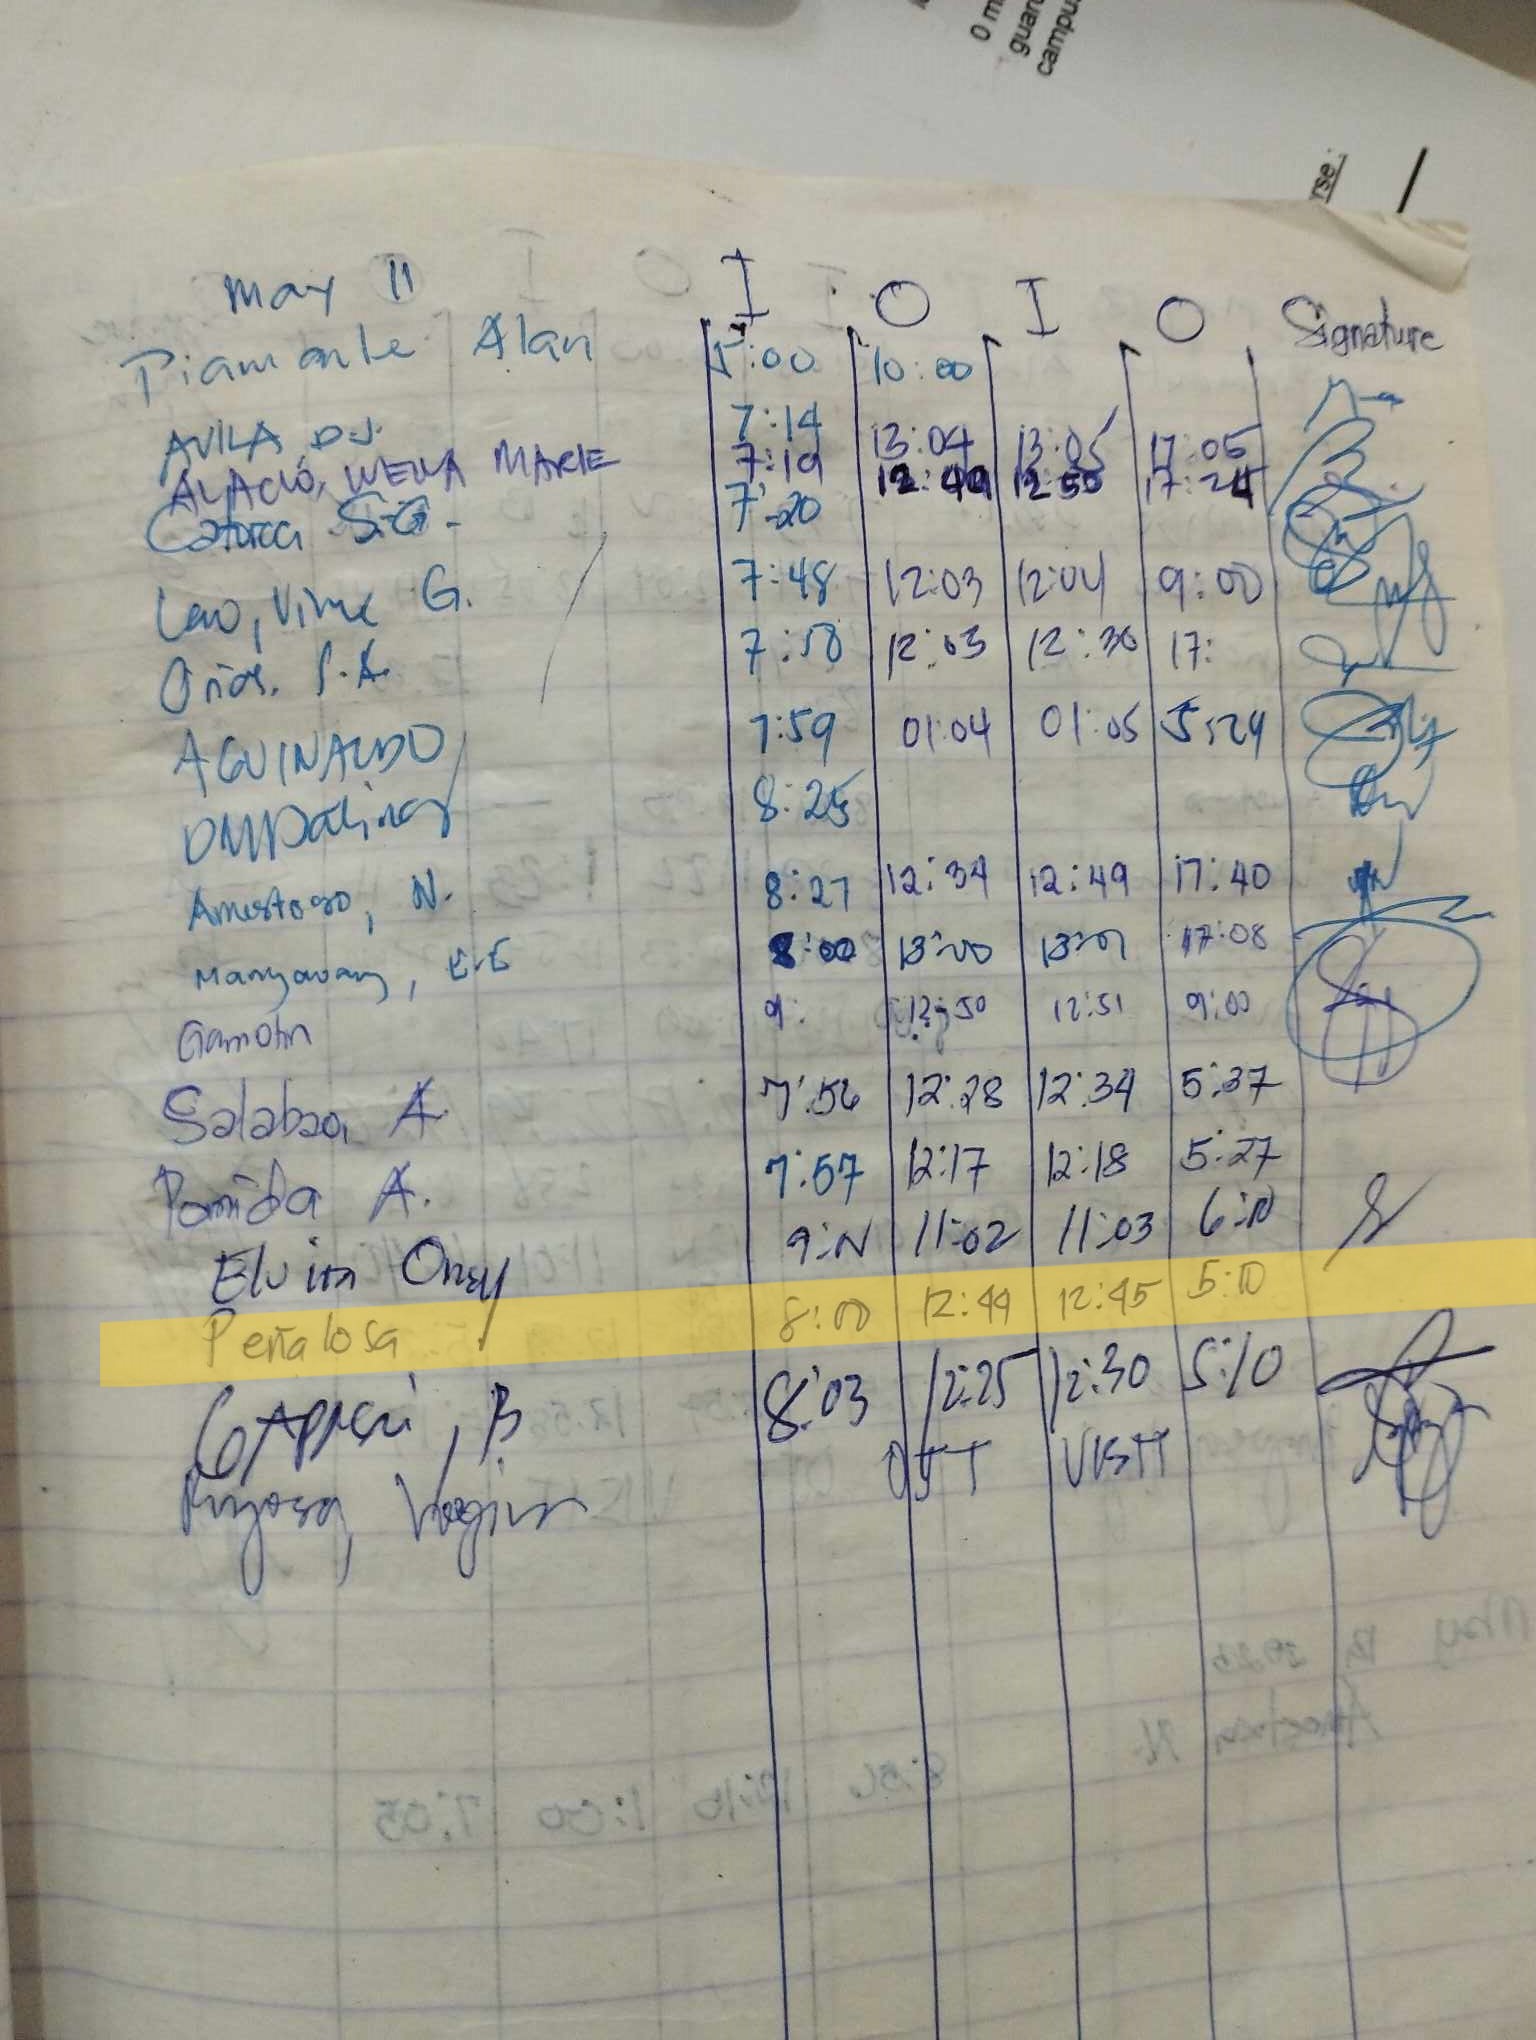 0 m
guar
campu
rse:
May 11 I O I O Signature
Piamonte Alan 5:00 10:00
AVILA, D.J. 7:14 13:04 13:05 17:05
ALACIO, WELLA MARIE 7:19 12:49 12:50 17:24
Catorca S.G. 7:20
Lao, Vince G. 7:48 12:03 12:04 9:00
Orias, P.A. 7:58 12:03 12:30 17:
AGUINALDO 7:59 01:04 01:05 5:24
8:25
Amestoso, N. 8:27 12:34 12:49 17:40
Mangavang, E.E 8:00 13:00 13:01 17:08
Gamotin 9: 12:50 12:51 9:00
Salabao, A. 7:56 12:28 12:34 5:37
Pomida A. 7:57 12:17 12:18 5:27
Elvira Oney 9:10 11:02 11:03 6:10
Peñalosa 8:00 12:44 12:45 5:10
B. 8:03 12:25 12:30 5:10
OJT VISIT